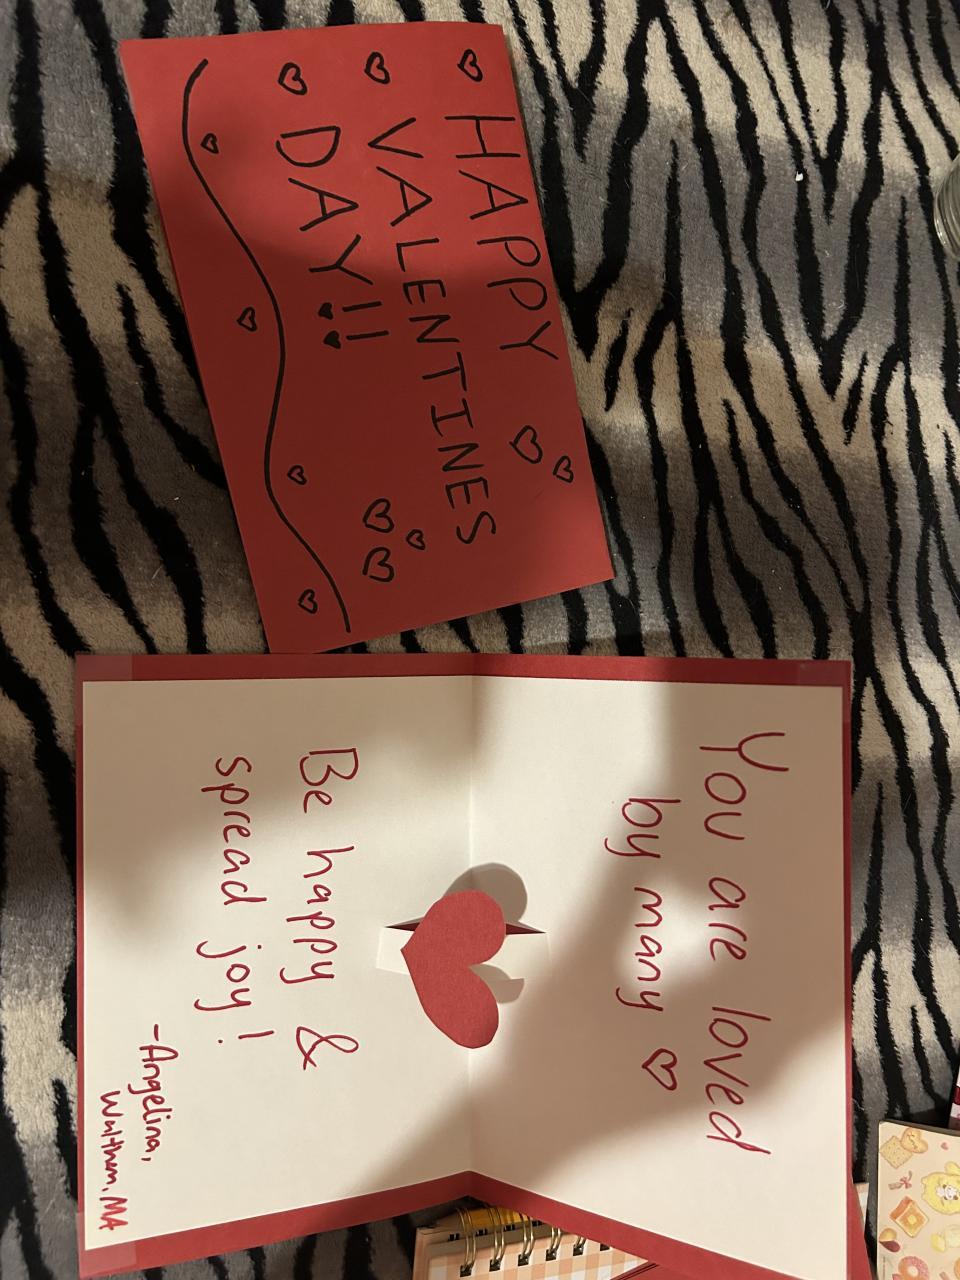 HAPPY
VALENTINES
DAY!!
You are loved
by many
Be happy &
spread joy!
-Angelina,
Waltham, MA